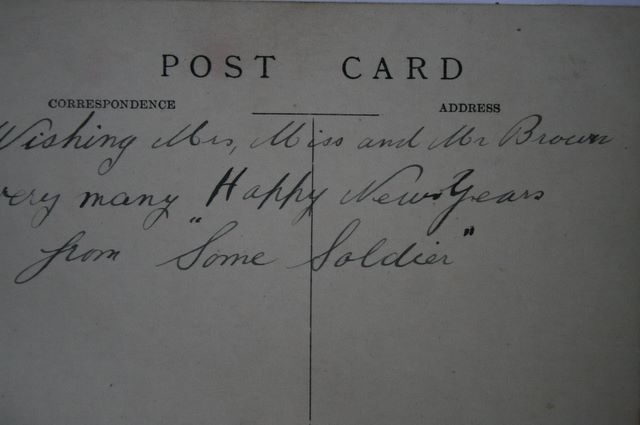 POST CARD
CORRESPONDENCE ADDRESS
Wishing Mrs, Miss and Mr Brown
very many Happy New Years
from "Some Soldier"